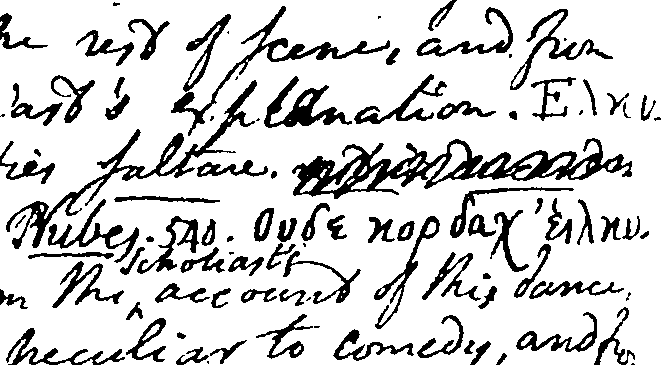 he rest of scene, and from
iast's explanation. Ελκυ.
ties saltare.
Nubes. 540. Ουδε κορδαχ' ἑιλκυ.
Scholiast's
m the account of this dance,
peculiar to comedy, and fro